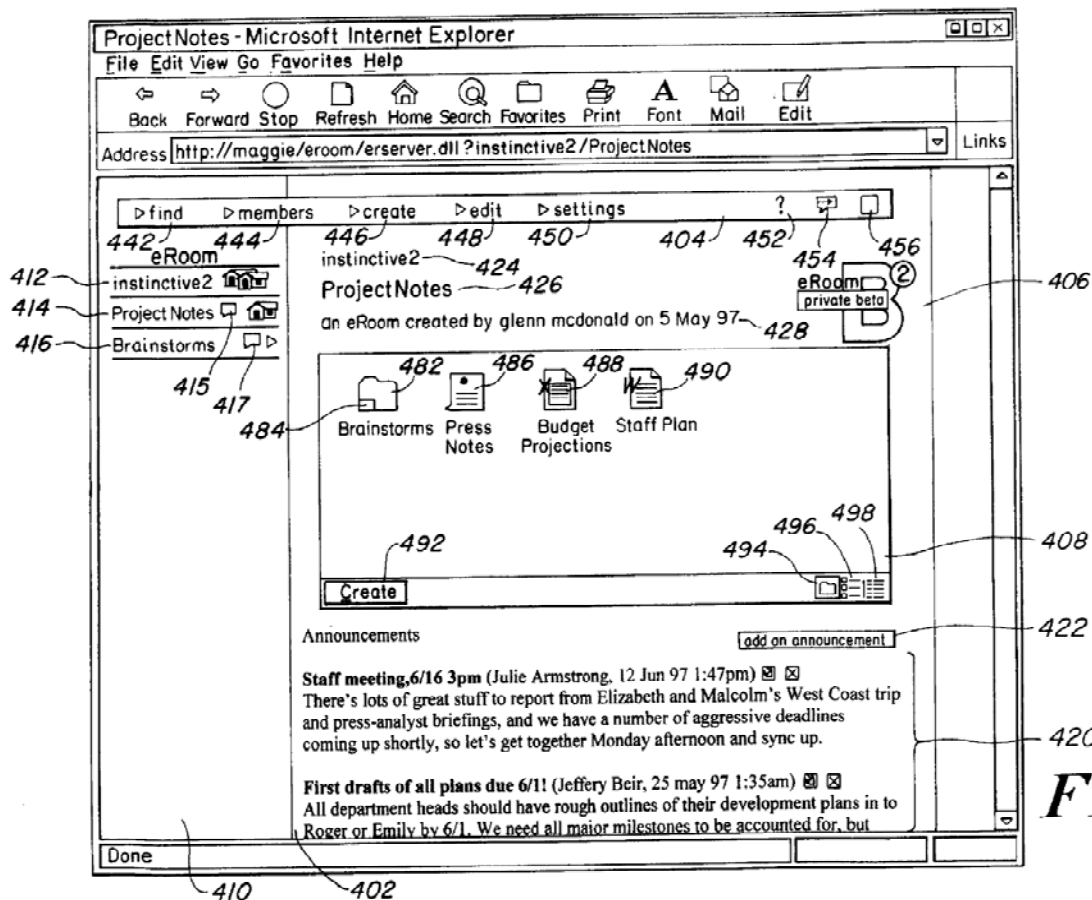 ProjectNotes - Microsoft Internet Explorer
File Edit View Go Favorites Help
Back Forward Stop Refresh Home Search Favorites Print Font Mail Edit
Address http://maggie/eroom/erserver.dll?instinctive2/ProjectNotes Links
find members create edit settings ?
442 444 446 448 450 404 452 454 456
eRoom
412 instinctive2
414 ProjectNotes
416 Brainstorms
415 417
instinctive2 424
ProjectNotes 426
an eRoom created by glenn mcdonald on 5 May 97 428
eRoom B 2
private beta
406
482 486 488 490
484
Brainstorms Press Notes Budget Projections Staff Plan
492 494 496 498
408
Create
Announcements add an announcement 422
Staff meeting,6/16 3pm (Julie Armstrong, 12 Jun 97 1:47pm)
There's lots of great stuff to report from Elizabeth and Malcolm's West Coast trip
and press-analyst briefings, and we have a number of aggressive deadlines
coming up shortly, so let's get together Monday afternoon and sync up.
420
First drafts of all plans due 6/1! (Jeffery Beir, 25 may 97 1:35am)
All department heads should have rough outlines of their development plans in to
Roger or Emily by 6/1. We need all major milestones to be accounted for, but
F
Done
410 402